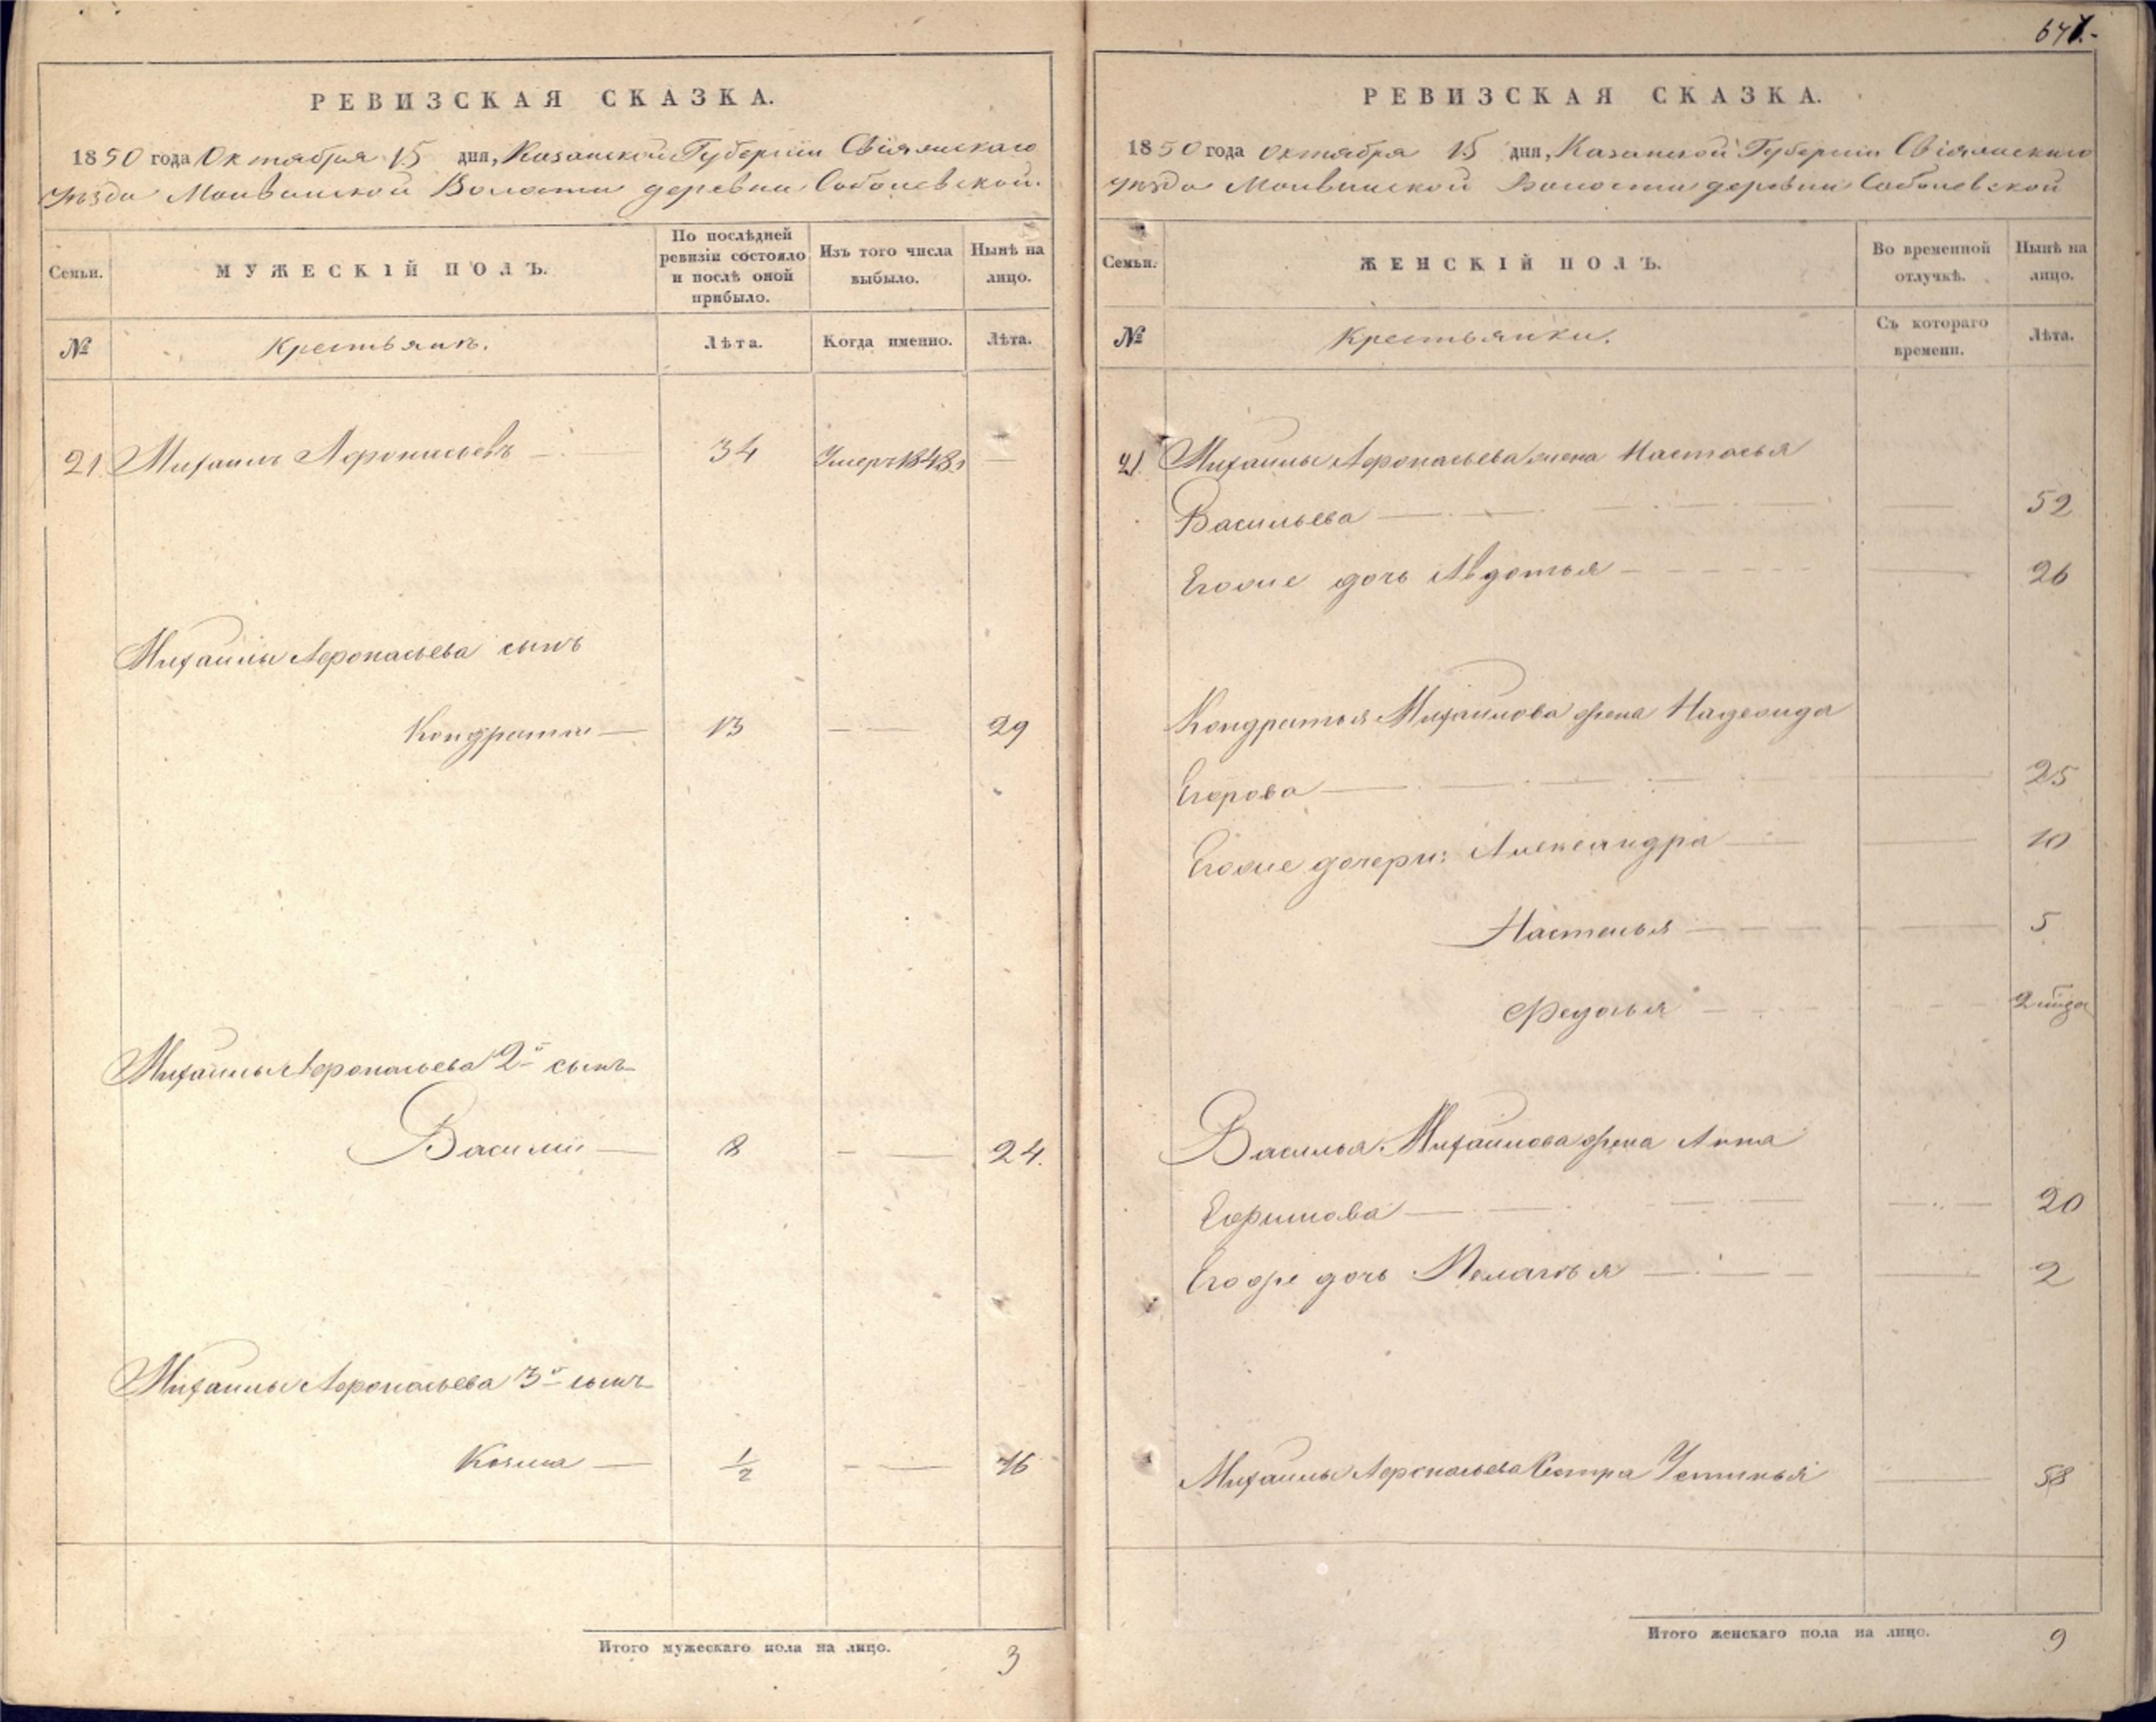 РЕВИЗСКАЯ СКАЗКА.
1850 года Октября 15 дня, Казанской Губернїи Свіяжскаго
уѣзда Волости деревни Соболевской.
Семьи.
МУЖЕСКІЙ ПОЛЪ.
По послѣдней ревизіи состояло и послѣ оной прибыло.
Изъ того числа выбыло.
Нынѣ на лицо.
№
Крестьянъ.
Лѣта.
Когда именно.
Лѣта.
21. Михаилъ Афонасьевъ — 34 Умеръ 1848 —
Михаилы Афонасьева сынъ
Кондратий — 13 — — 29
Михаилы Афонасьева 2й сынъ
Василий — 8 — — 24.
Михаилы Афонасьева 3й сынъ
Козма — 1/2 — — 16
Итого мужескаго пола на лицо. 3
647.-
РЕВИЗСКАЯ СКАЗКА.
1850 года Октября 15 дня, Казанской Губерніи Свіяжскаго
уѣзда Волости деревни Соболевской
Семьи.
ЖЕНСКІЙ ПОЛЪ.
Во временной отлучкѣ.
Нынѣ на лицо.
№
Крестьянки.
Съ котораго времени.
Лѣта.
21. Михаилы Афонасьева жена Настасья
Васильева — — 52
Егоже дочь Авдотья — — 26
Кондратья Михайлова жена Надежда
Егорова — — 25
Егоже дочери: Александра — — 10
Настасья — — 5
Федосья — — 2 года
Василья Михайлова жена Анна
Ефимова — — 20
Егоже дочь Пелагья — — 2
Михаилы Афонасьева Сестра Устинья — 58
Итого женскаго пола на лицо. 9